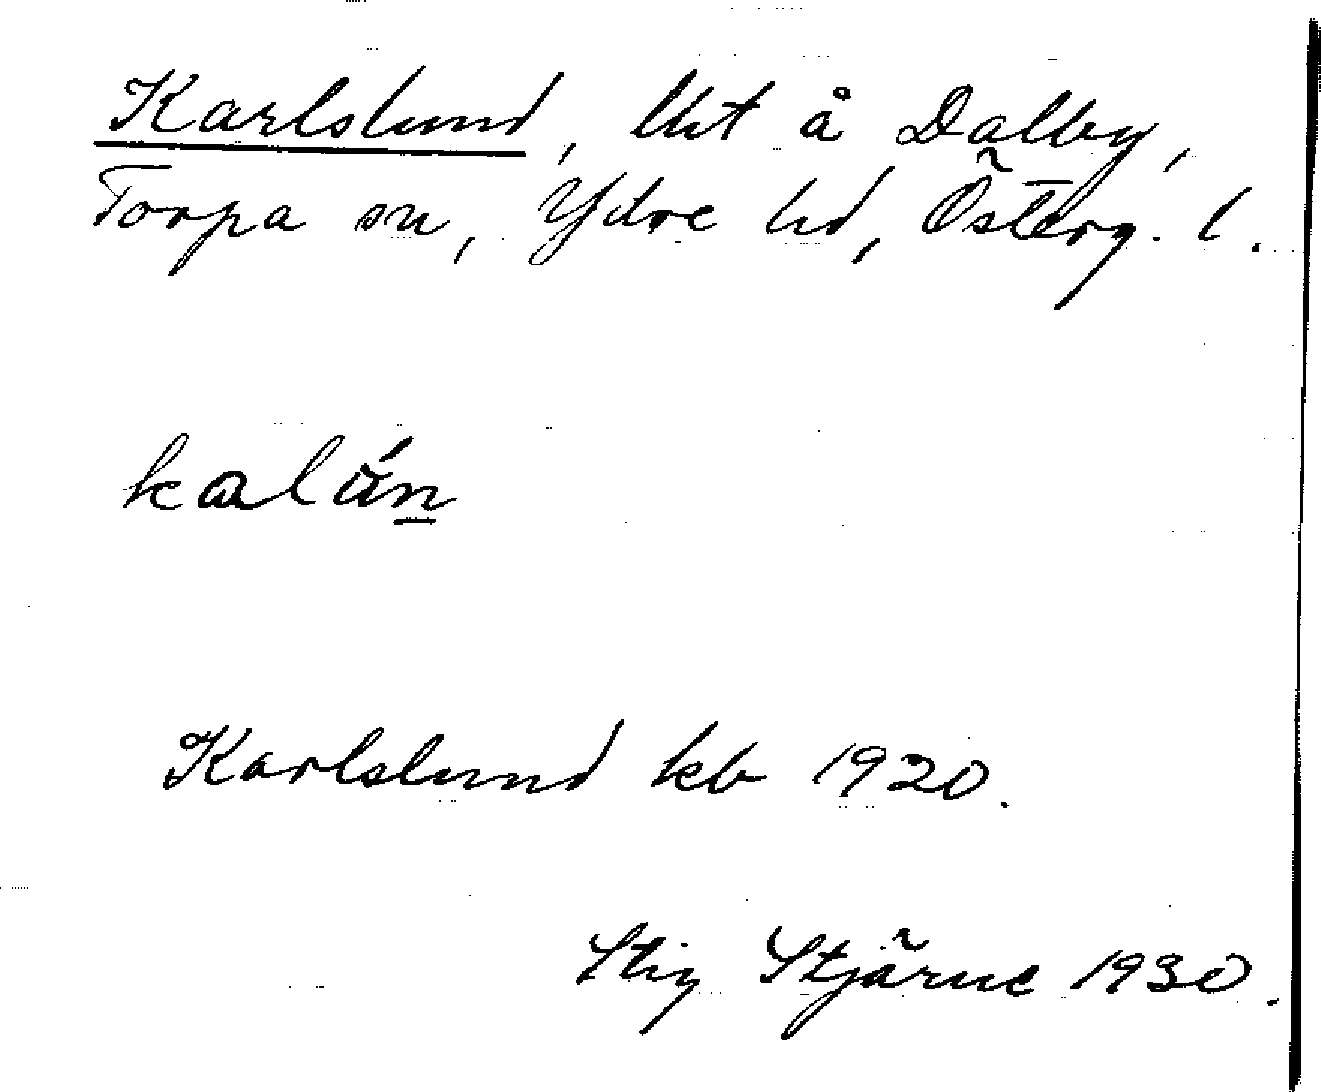 Karlslund, lht å Dalby,
Torpa sn, Ydre hd, Österg. l.
Karlslund kb 1920.
Stig Stjärne 1930.